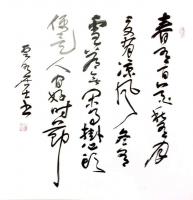 春有百花秋有月
夏有凉风冬有
雪若无闲事掛心头
便是人间好时节